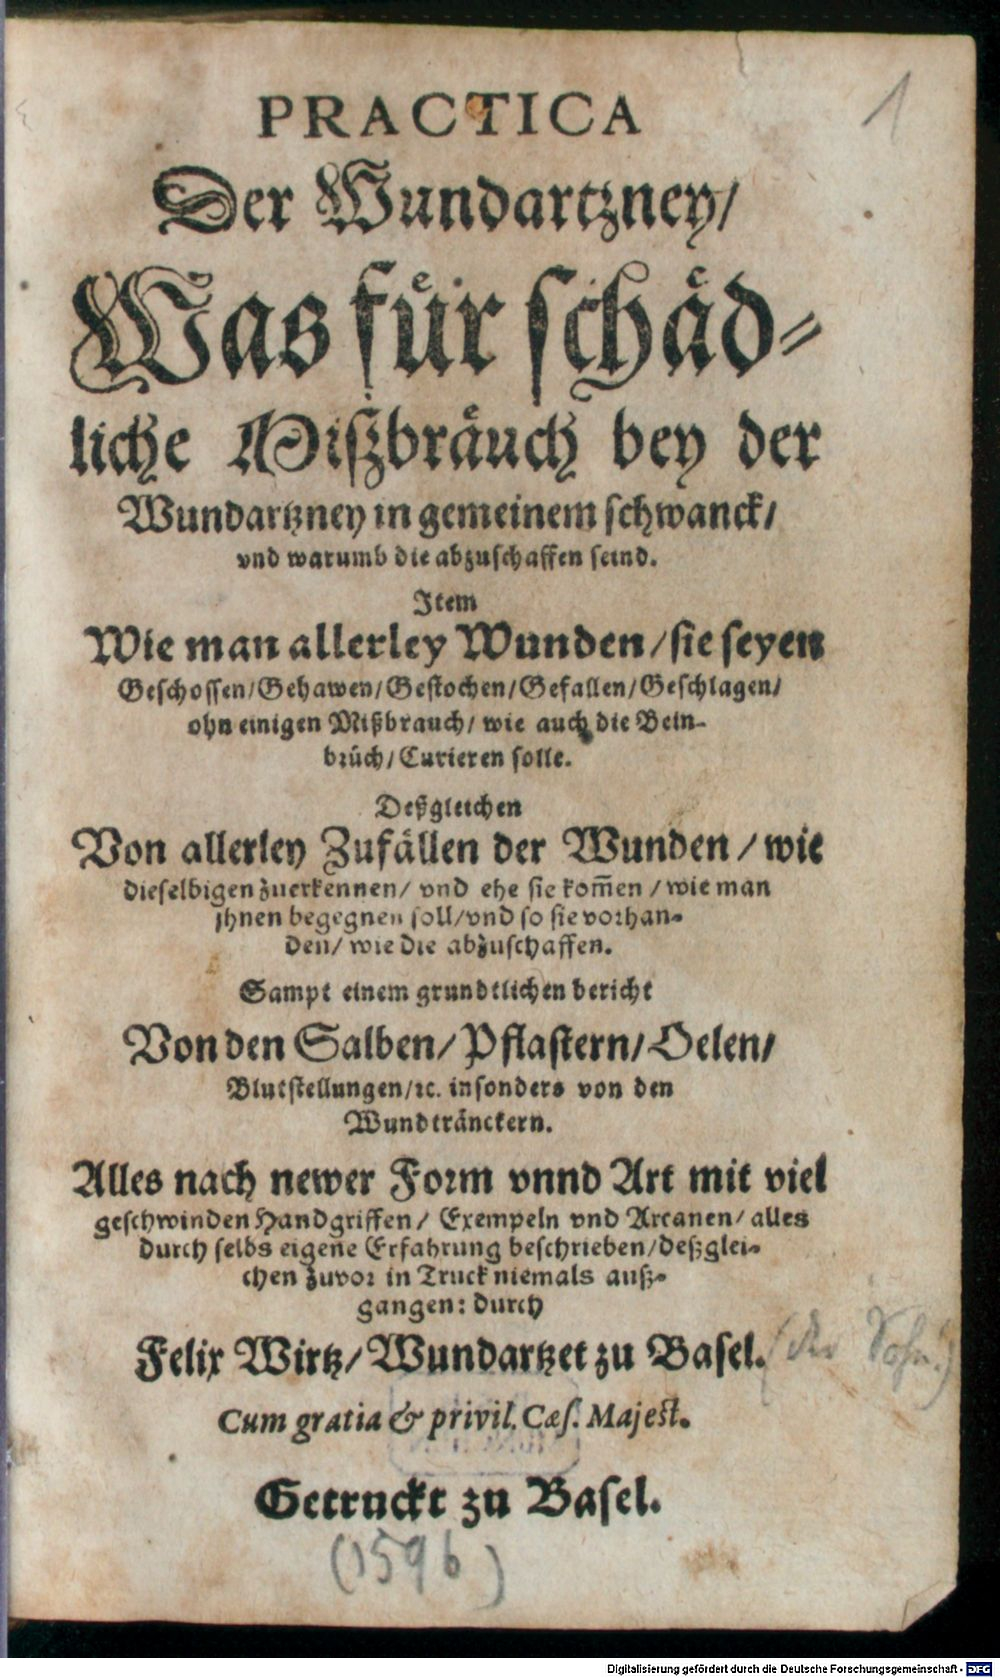 1
PRACTICA
Der Wundartzney/
Was für schäd-
liche Mißbräuch bey der
Wundartzney in gemeinem schwanck/
vnd warumb die abzuschaffen seind.
Item
Wie man allerley Wunden/sie seyen
Geschossen/Gehawen/Gestochen/Gefallen/Geschlagen/
ohn einigen Mißbrauch/ wie auch die Bein-
brüch/Curieren solle.
Deßgleichen
Von allerley Zufällen der Wunden/ wie
dieselbigen zuerkennen/ vnd ehe sie kom̃en/wie man
jhnen begegnen soll/vnd so sie vorhan-
den/ wie die abzuschaffen.
Sampt einem grundtlichen bericht
Von den Salben/Pflastern/Oelen/
Blutstellungen/ꝛc. insonders von den
Wundtränckern.
Alles nach newer Form vnnd Art mit viel
geschwinden Handgriffen/ Exempeln vnd Arcanen/ alles
durch selbs eigene Erfahrung beschrieben/deßglei-
chen zuvor in Truck niemals auß-
gangen: durch
Felix Wirtz/Wundartzet zu Basel. (der Sohn.)
Cum gratia & privil. Cæs. Majest.
Getruckt zu Basel.
(1596)
Digitalisierung gefördert durch die Deutsche Forschungsgemeinschaft - DFG